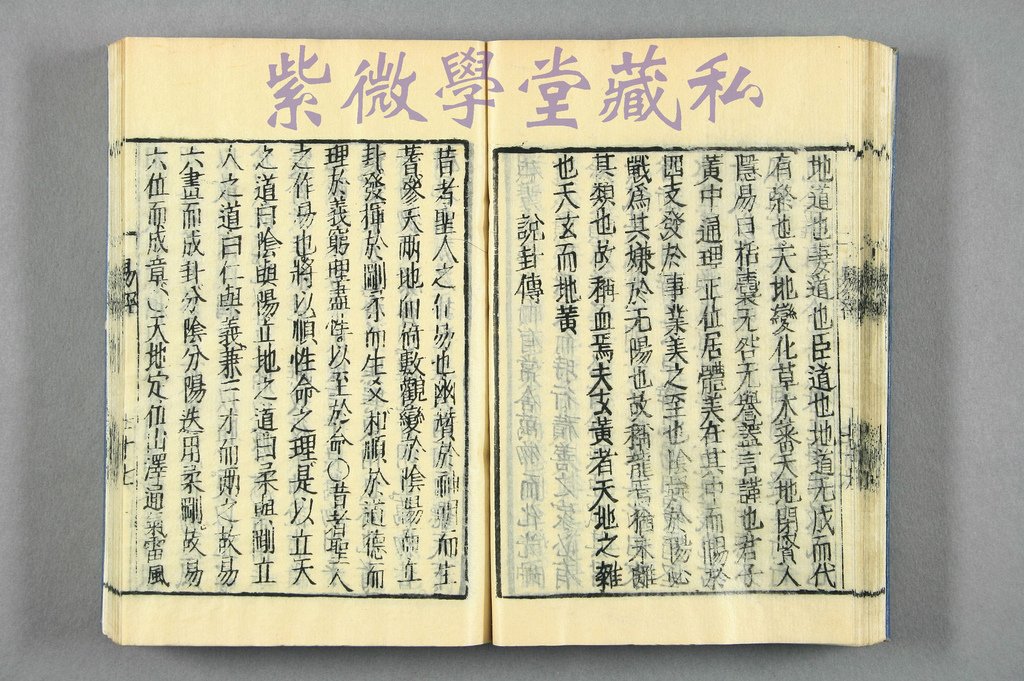 紫微學堂藏私
地道也妻道也臣道也地道无成而代
有終也天地變化草木蕃天地閉賢人
隱易曰括囊无咎无譽蓋言謹也君子
黃中通理正位居體美在其中而暢於
四支發於事業美之至也陰疑於陽必
戰為其嫌於无陽也故稱龍焉猶未離
其類也故稱血焉夫玄黃者天地之雜
也天玄而地黃
說卦傳
昔者聖人之作易也幽贊於神明而生
蓍參天兩地而倚數觀變於陰陽而立
卦發揮於剛柔而生爻和順於道德而
理於義窮理盡性以至於命○昔者聖人
之作易也將以順性命之理是以立天
之道曰陰與陽立地之道曰柔與剛立
人之道曰仁與義兼三才而兩之故易
六畫而成卦分陰分陽迭用柔剛故易
六位而成章○天地定位山澤通氣雷風